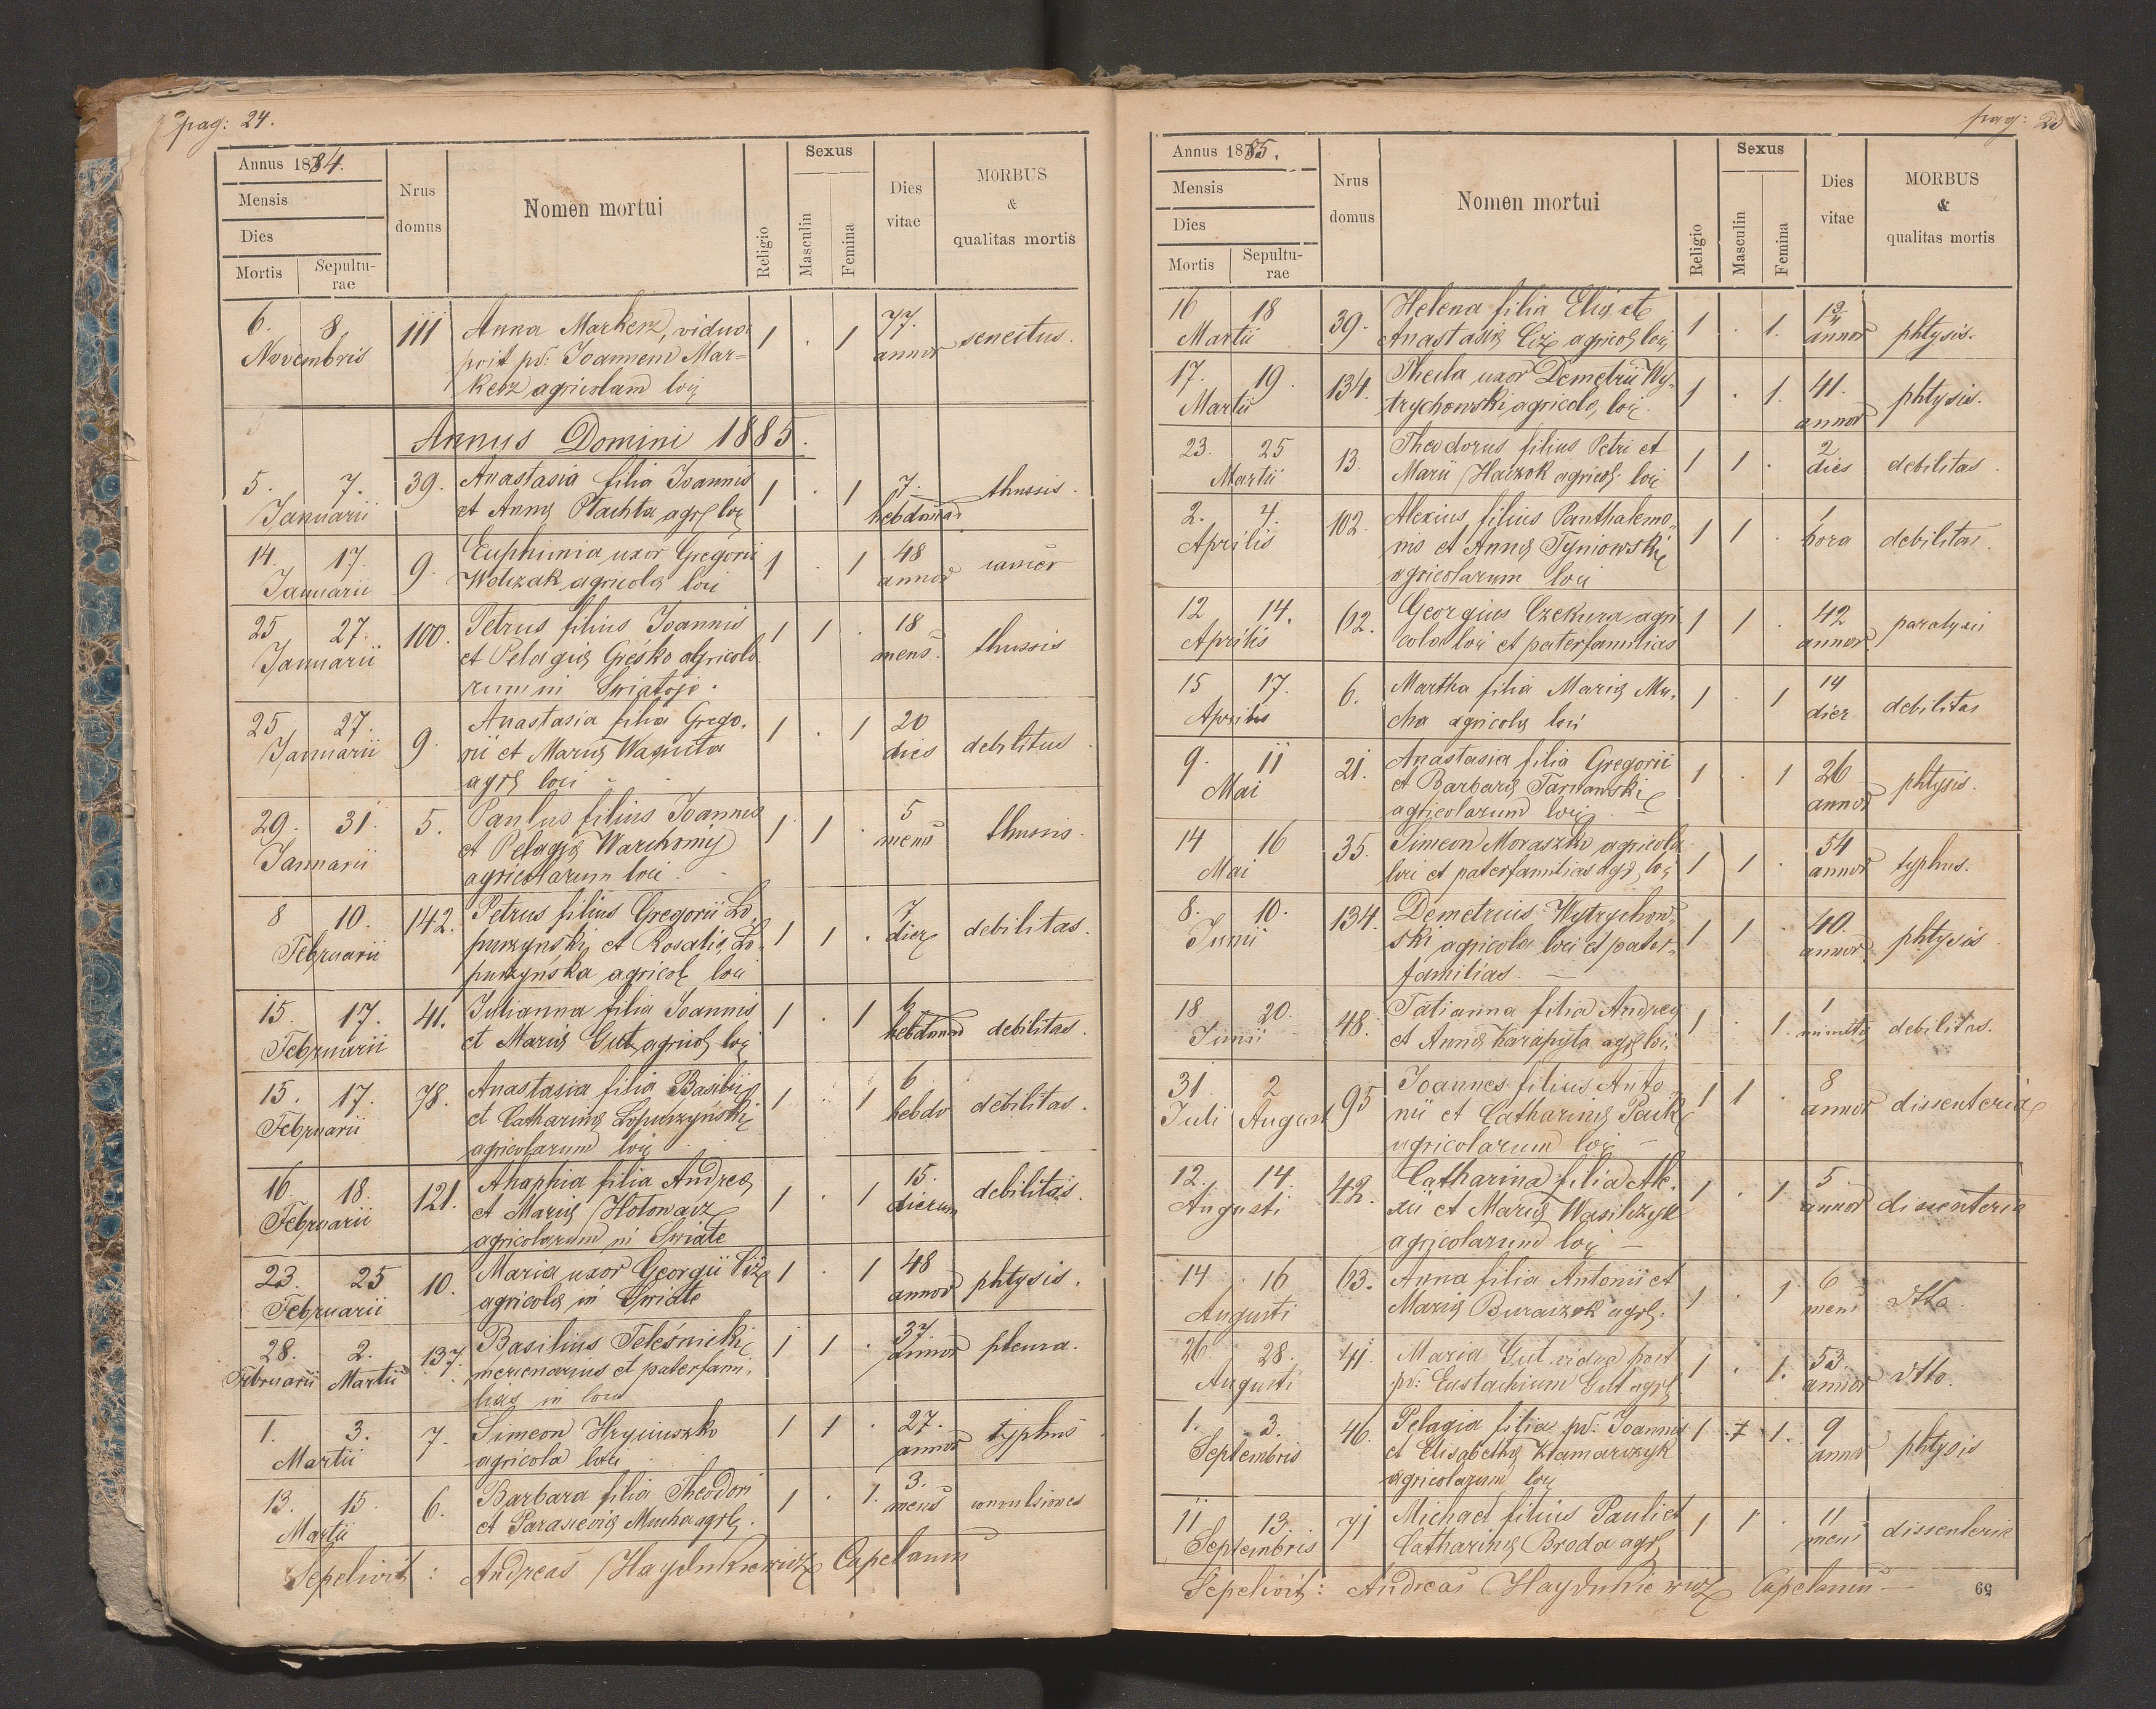 pag: 24.
Annus 1884.
Mensis
Dies
Mortis Sepultu-
rae
Nrus
domus
Nomen mortui
Religio
Sexus
Masculin
Femina
Dies
vitae
MORBUS
&
qualitas mortis
6. 8. 111 Anna Markerz, vidua 1 . 1 77. senectus.
Novembris post pd: Joannem Mar= annor
kerz agricolam loci
Annus Domini 1885.
5. 7. 39. Anastasia filia Joannis 1 . 1 7. thussis.
Januarii et Annæ Płachta agrlę loci hebdomad
14. 17. 9. Euphimia uxor Gregorii 1 . 1 48
Januarii Wolczak agricolæ loci annor
25 27. 100. Petrus filius Joannis 1 1 . 18 thussis
Januarii et Pelagiæ Gresko agricola mens.
rum in Swiatoje.
25 27. 9. Anastasia filia Grego- 1 . 1 20 debilitas.
Januarii rii et Mariæ Waguta dies
agrlæ loci
29. 31. 5. Paulus filius Joannis 1 1 . 5 thussis.
Januarii et Pelagiæ Warchomij mens
agricolarum loci.
8 10. 142. Petrus filius Gregorii Lo- 1 1 . 7 debilitas.
Februarii puszynski et Rosaliæ Lo- dier
puszyńska agricol loci
15. 17. 41. Julianna filia Joannis 1 . 1 6 debilitas.
Februarii et Mariæ Gut agricol loci hebdomad
15. 17. 78. Anastasia filia Basilii 1 . 1 6 debilitas.
Februarii et Catharinæ Łopuszyński hebdo
agricolarum loci
16. 18. 121. Ahaphia filia Andreæ 1 . 1 15. debilitas.
Februarii et Mariæ Hołowacz dierum
agricolarum in Swiate
23. 25 10. Maria uxor Georgii Ciż 1 . 1 48 phtysis.
Februarii agricolæ in Swiate annor
28. 2. 137. Basilius Teleśnicki 1 1 . 37. pleura.
Februarii Martii mercenarius et paterfami- annor
lias in loco
1. 3. 7. Simeon Hryciuszko 1 1 . 27. typhus
Martii agricola loci annor
13. 15. 6. Barbara filia Theodori 1 . 1. 3. convulsiones
Martii et Parasceviæ Mucha agrlę. mens
Sepelivit: Andreas Haydukiewicz Capelanus
pag: 25
Annus 1885.
Mensis
Dies
Mortis Sepultu-
rae
Nrus
domus
Nomen mortui
Religio
Sexus
Masculin
Femina
Dies
vitae
MORBUS
&
qualitas mortis
16 18 39. Helena filia Eliæ et 1 . 1. 1 3/4 phtysis.
Martii Anastasiæ Ciż agricol loci annor
17. 19. 134. Thecla uxor Demetrii Wy- 1 . 1. 41. phtysis.
Martii trychowski agricolæ loci. annor
23. 25 13. Theodorus filius Petri et 1 1 . 2 debilitas.
Martii Marii Haczok agricol. loci dies
2. 4. 102. Alexius filius Panthalemo- 1 1 . 1 debilitas.
Aprilis nis et Annæ Tyniowski hora
agricolarum loci
12 14. 62. Georgius Czekura agri- 1 1 . 42 paralysis
Aprilis cola loci et paterfamilias annor
15 17. 6. Martha filia Mariæ Mu- 1 . 1 14 debilitas
Aprilis cha agricolæ loci dier
9. 11 21. Anastasia filia Gregorii 1 . 1 26 phtysis.
Mai et Barbaræ Tarnawski annor
agricolarum loci.
14 16 35. Simeon Moraszko agricola 1 1 . 54 typhus.
Mai loci et paterfamilias agrl loci annor
8. 10. 134. Demetrius Wytrychow- 1 1 . 40. phtysis.
Junii ski agricola loci et pater- annor
familias.
18 20. 48. Tatianna filia Andreæ 1 . 1. 1 debilitas.
Junii et Annæ Karapyta agrlę loci minuta
31 2 95 Joannes filius Anto- 1 1 . 8 dissenteria
Juli August nii et Catharinæ Pack annor
agricolarum loci
12. 14. 42. Catharina filia Ale- 1 . 1 5. dissenteria
Augusti xii et Mariæ Wasilczyk annor
agricolarum loci
14 16 63. Anna filia Antonii et 1 . 1 6 dtto.
Augusti Mariæ Buraczok agrl. mens
26. 28. 41. Maria Gut vidua post 1 . 1. 53. dtto.
Augusti pd: Eustachium Gut agrlę annor
1. 3. 46. Pelagia filia pd: Joannis 1 . 1. 9 phtysis
Septembris et Elisabethæ Klamarczyk annor
agricolarum loci
11 13. 71 Michael filius Pauli et 1 1 . 11 dissenterie
Septembris Catharinæ Broda agrl mens
Sepelivit: Andreas Haydukiewicz Capelanus
69